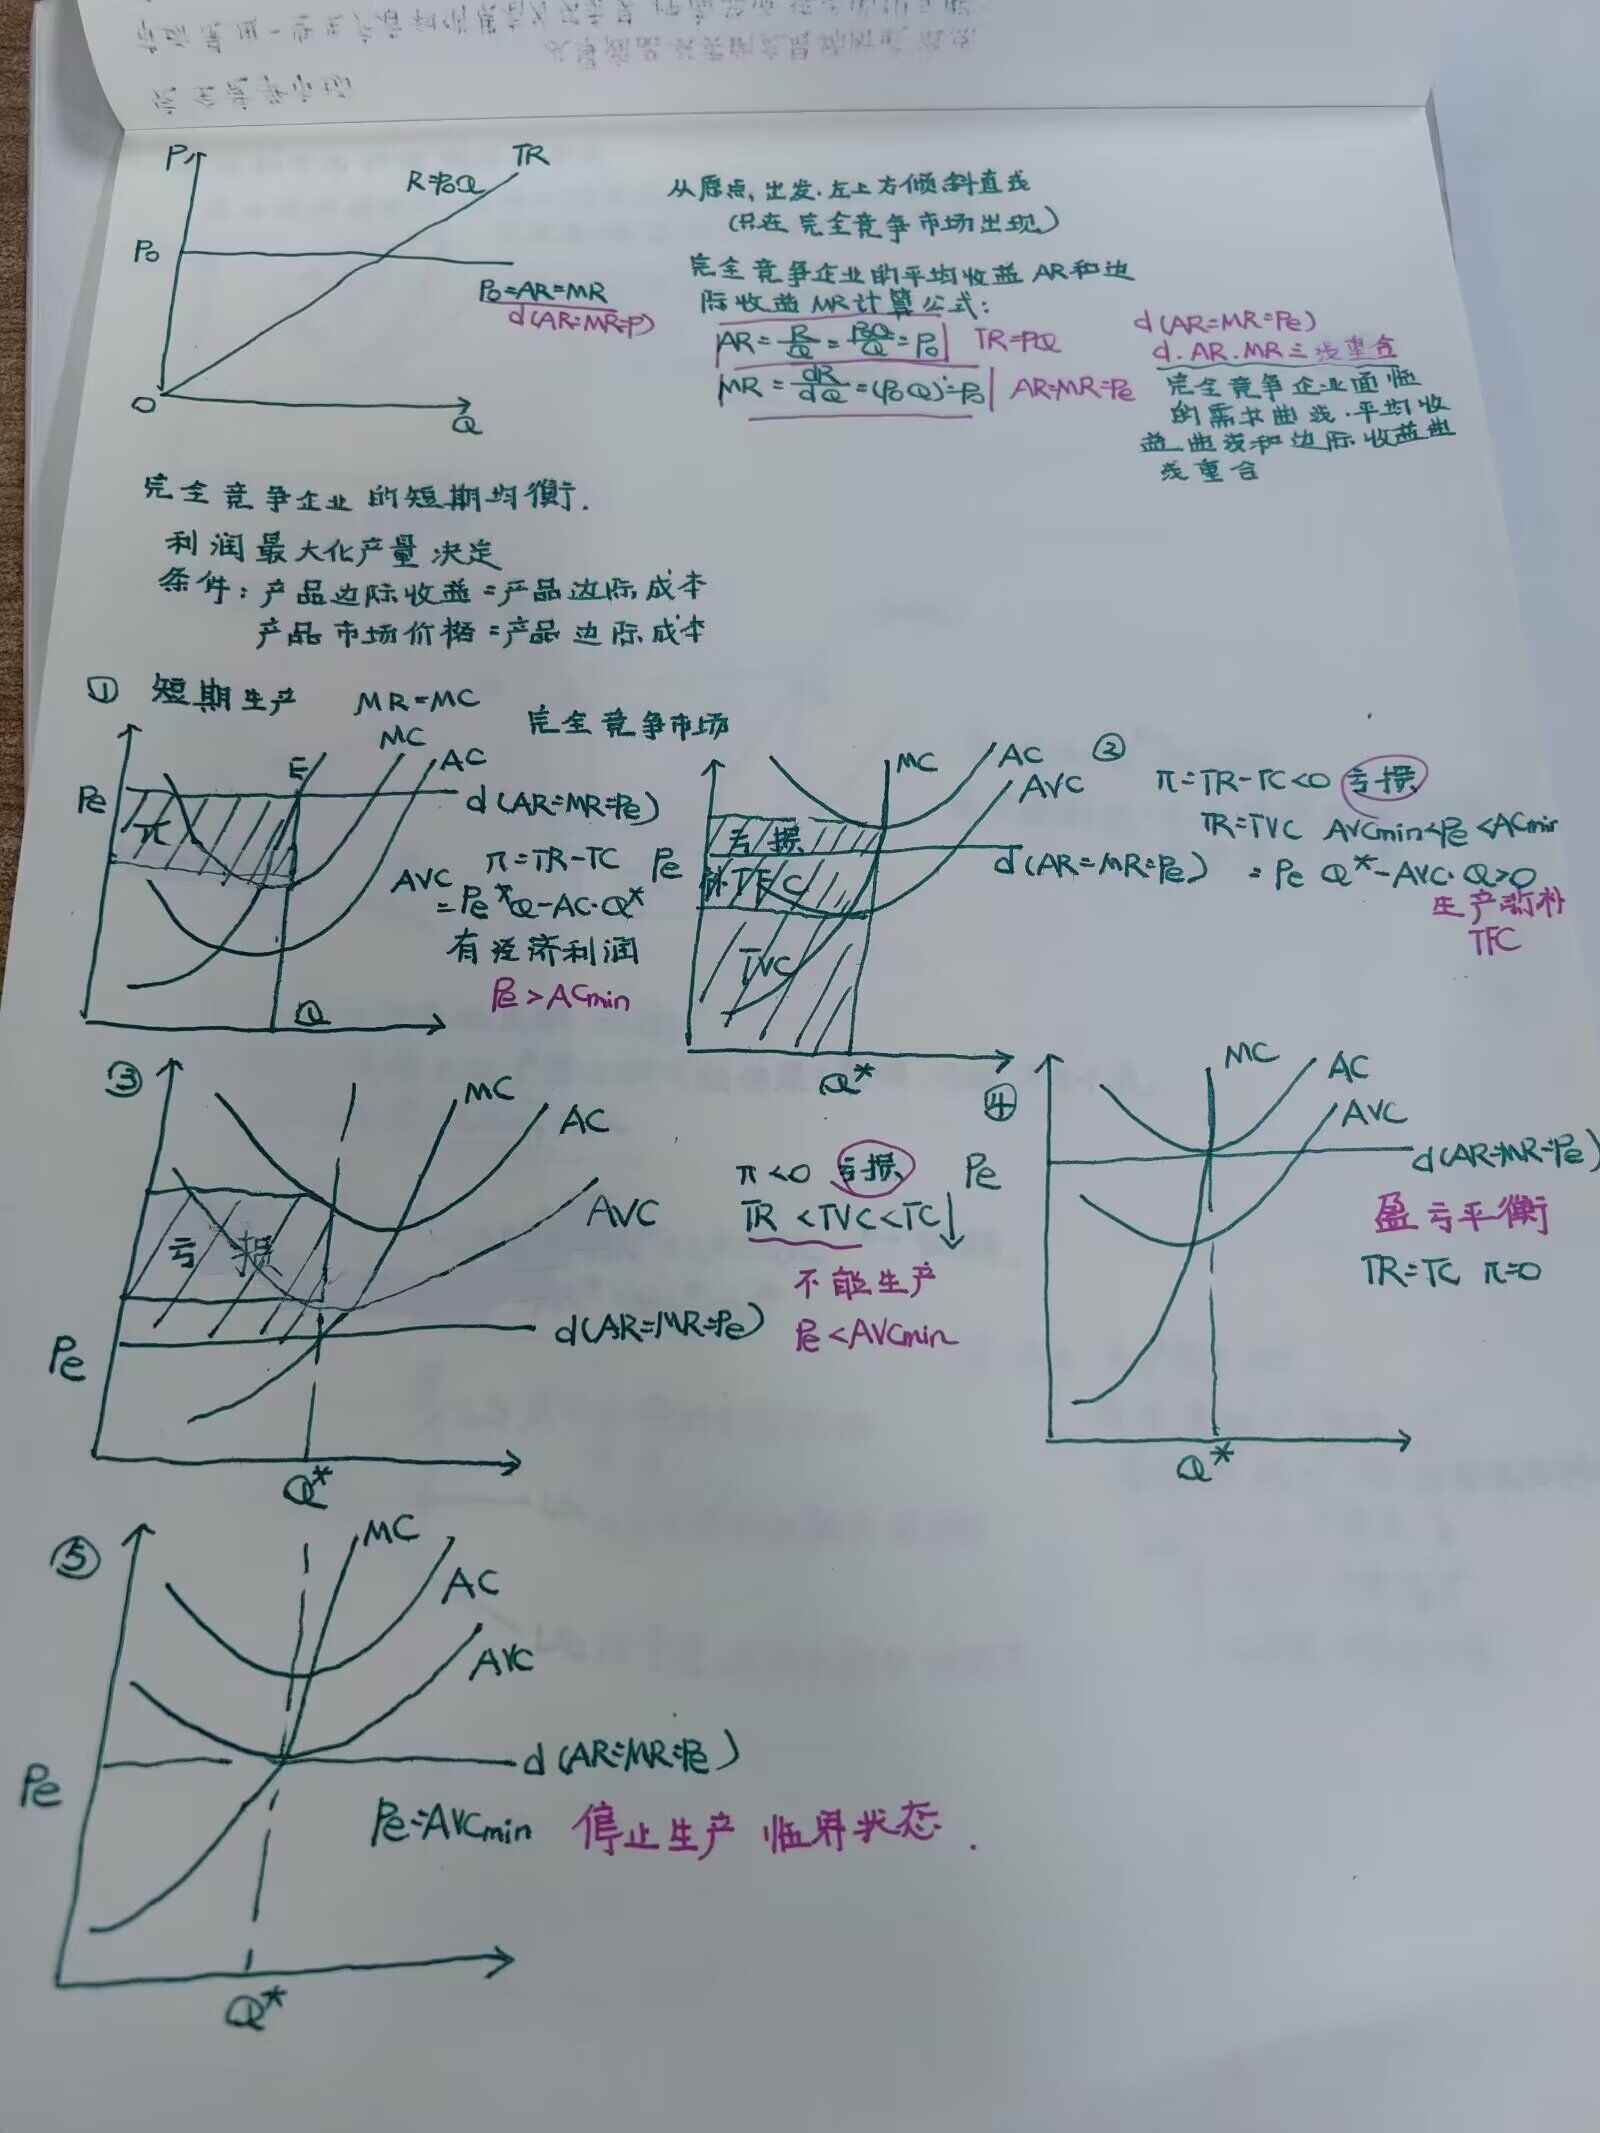 P
TR
R=P₀Q
P₀
P₀=AR=MR
d(AR=MR=P)
O
Q
从原点,出发.左上方倾斜直线
(只在完全竞争市场出现)
完全竞争企业的平均收益AR和边
际收益MR计算公式:
AR=R/Q=P₀Q/Q=P₀ TR=PQ
MR=dR/dQ=(P₀Q)'=P₀ AR=MR=Pe
d(AR=MR=Pe)
d.AR.MR三线重合
完全竞争企业面临
的需求曲线.平均收
益曲线和边际收益曲
线重合
完全竞争企业的短期均衡.
利润最大化产量决定
条件:产品边际收益=产品边际成本
产品市场价格=产品边际成本
① 短期生产 MR=MC 完全竞争市场
MC
AC
E
Pe
π
d(AR=MR=Pe)
AVC
π=TR-TC
=Pe*Q-AC·Q*
有经济利润
Pe>ACmin
Q
②
MC
AC
AVC
亏损
Pe
补TFC
TVC
d(AR=MR=Pe)
Q*
π=TR-TC<0 亏损
TR=TVC AVCmin<Pe<ACmin
=Pe Q*-AVC·Q>0
生产弥补
TFC
③
MC
AC
AVC
亏损
Pe
d(AR=MR=Pe)
Q*
π<0 亏损
TR<TVC<TC↓
不能生产
Pe<AVCmin
④
MC
AC
AVC
Pe
d(AR=MR=Pe)
盈亏平衡
TR=TC π=0
Q*
⑤
MC
AC
AVC
Pe
d(AR=MR=Pe)
Pe=AVCmin 停止生产 临界状态.
Q*